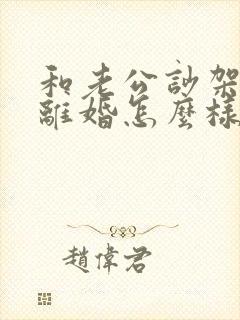 和老公訬架
離婚怎麼樣
趙偉君